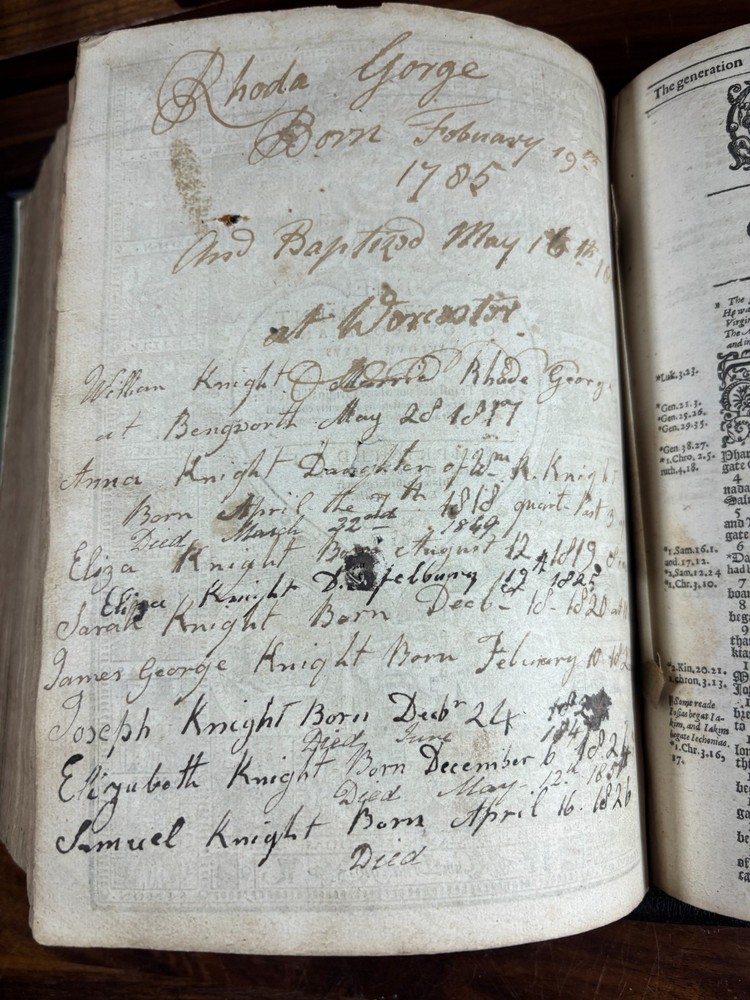 Rhoda Gorge
Born Fobuary 19th
1785
And Baptized May 16th
at Worcester
William Knight Marrid Rhode George
at Bengworth May 28 1817
Anna Knight Daughter of Wm R. Knight
Born April the 7th 1818 quart. Past
Died March 22nd 1849
Eliza Knight Born August 12th 1819
Eliza Knight D. 19 1825
Sarah Knight Born Decb- 18- 1820
James George Knight Born Februrary 10
Joseph Knight Born Decbr 24
Died June
Elizabeth Knight Born December 6 1824
Died May 12th
Samuel Knight Born April 16. 1826
Died
The generation
Luk.3.23.
Gen.21.3.
Gen.25.26.
Gen.29.35.
Gen.38.27.
1.Chro.2.5.
ruth.4.18.
1.Sam.16.1.
and.17.12.
2.Sam.12.24
1.Chr.3.10.
2.Kin.20.21.
1.chron.3.13.
Some reade
Iosias begat Ia-
kim, and Iakim
begate Iechonias.
1.Chr.3.16,
17.